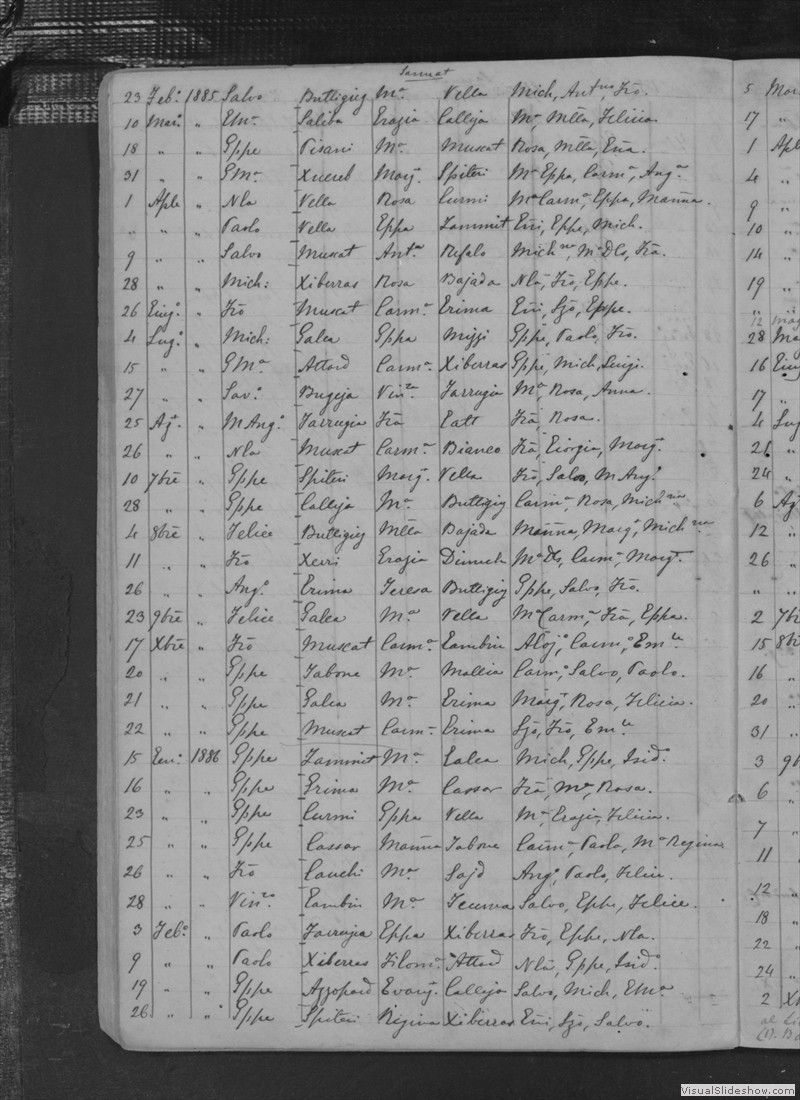 Sannat
23 Feb: 1885 Salvo Buttigieg Ma Vella Mich, Antna, Frõ.
10 Mar: " GMa Saliba Grazia Calleja Ma, Mttã, Felicia
18 " " Gppe Pisani Ma Muscat Rosa, Mttã,
31 " " GMa Xuereb Marg. Spiteri Ma Gppa, Carma, Anga
1 Aple " Nla Vella Rosa Curmi Ma Carma, Gppa, Manna.
" " " Paolo Vella Gppa Zammit Gio, Gppe, Mich.
9 " " Salvo Muscat Anta Refalo Michna, Ma Dls, Frã.
28 " " Mich: Xiberras Rosa Bajada Nla, Frõ, Gppe.
26 Giug: " Frõ Muscat Carma Grima Gio, Gppe.
4 Lug: " Mich: Galea Gppa Mizzi Gppe, Paolo, Frõ.
15 " " GMa Attard Carma Xiberras Gppe, Mich, Luigi.
27 " " Sav: Bugeja Vinza Farrugia Ma, Rosa, Anna.
25 Ag: " M Ang: Farrugia Frã Catt Frã, Rosa.
26 " " Nla Muscat Carma Bianco Frã, Giorgia, Marg.
10 7bre " Gppe Spiteri Marg. Vella Frõ, Salvo, M Ang:
28 " " Gppe Calleja Ma Buttigieg Carma, Rosa, Michna
4 8bre " Felice Buttigieg Mttã Bajada Manna, Marg., Michna
11 " " Frõ Xerri Grazia Dimech Ma Dls, Carma, Marg.
26 " " Ang: Grima Teresa Buttigieg Gppe, Salvo, Frõ.
23 9bre " Felice Galea Ma Vella Ma Carma, Frã, Gppa.
17 Xbre " Frõ Muscat Carma Cambin Aloj:, Carm:, Emle
20 " " Gppe Tabone Ma Mallia Carm:, Salvo, Paolo.
21 " " Gppe Galea Ma Grima Marg., Rosa, Felicia.
22 " " Gppe Muscat Carma Grima Frõ, Emle
15 Gen: 1886 Gppe Zammit Ma Galea Mich, Gppe, Isid:
16 " " Gppe Grima Ma Cassar Frã, Ma, Rosa.
23 " " Gppe Curmi Gppa Vella Ma, Grazia, Felicia.
25 " " Gppe Cassar Manna Tabone Carma, Paola, Ma Regina
26 " " Frõ Cauchi Ma Sajd Ang:, Paolo, Felice.
28 " " Vinzo Cambin Ma Tecuma Salvo, Gppe, Felice.
3 Feb: " Paolo Farrugia Gppa Xiberras Frõ, Gppe, Nla.
9 " " Paolo Xiberras Filom: Attard Nla, Gppe, Isid:
19 " " Gppe Azzopard Evang. Calleja Salvo, Mich, GMa
26 " " Gppe Spiteri Regina Xiberras Gio, Salvo.
5 Mar
17 "
1 Aple
4 "
9 "
10 "
14 "
19 "
" "
12 Mag
28 Ma
16 Giug
17 "
4 Lug
21 "
24 "
6 Ag
12 "
26 "
" "
2 7bre
15 8bre
16 "
20 "
31 "
3 9b
6 "
7 "
11 "
12 "
18 "
22 "
24 "
2 Xb
VisualSlideshow.com